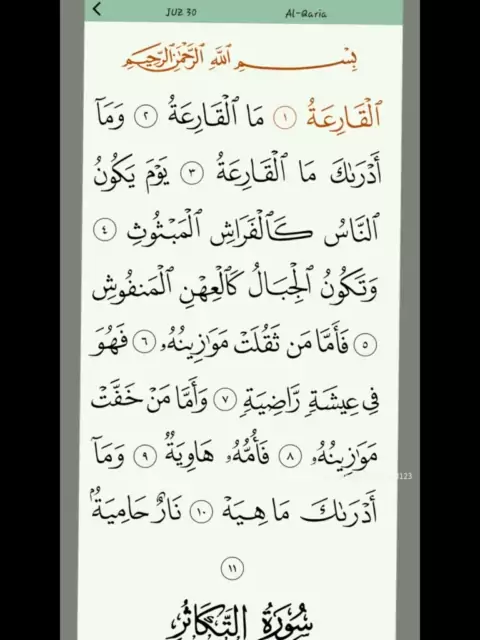 JUZ 30 Al-Qaria
بِسْمِ ٱللَّهِ ٱلرَّحْمَٰنِ ٱلرَّحِيمِ
ٱلْقَارِعَةُ ١ مَا ٱلْقَارِعَةُ ٢ وَمَآ
أَدْرَىٰكَ مَا ٱلْقَارِعَةُ ٣ يَوْمَ يَكُونُ
ٱلنَّاسُ كَٱلْفَرَاشِ ٱلْمَبْثُوثِ ٤
وَتَكُونُ ٱلْجِبَالُ كَٱلْعِهْنِ ٱلْمَنفُوشِ
٥ فَأَمَّا مَن ثَقُلَتْ مَوَٰزِينُهُۥ ٦ فَهُوَ
فِى عِيشَةٍ رَّاضِيَةٍ ٧ وَأَمَّا مَنْ خَفَّتْ
مَوَٰزِينُهُۥ ٨ فَأُمُّهُۥ هَاوِيَةٌ ٩ وَمَآ
أَدْرَىٰكَ مَا هِيَهْ ١٠ نَارٌ حَامِيَةٌۢ
١١
سُورَةُ التَّكَاثُرِ